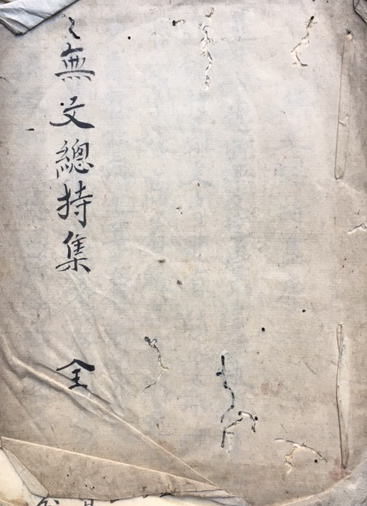 無文總持集 全